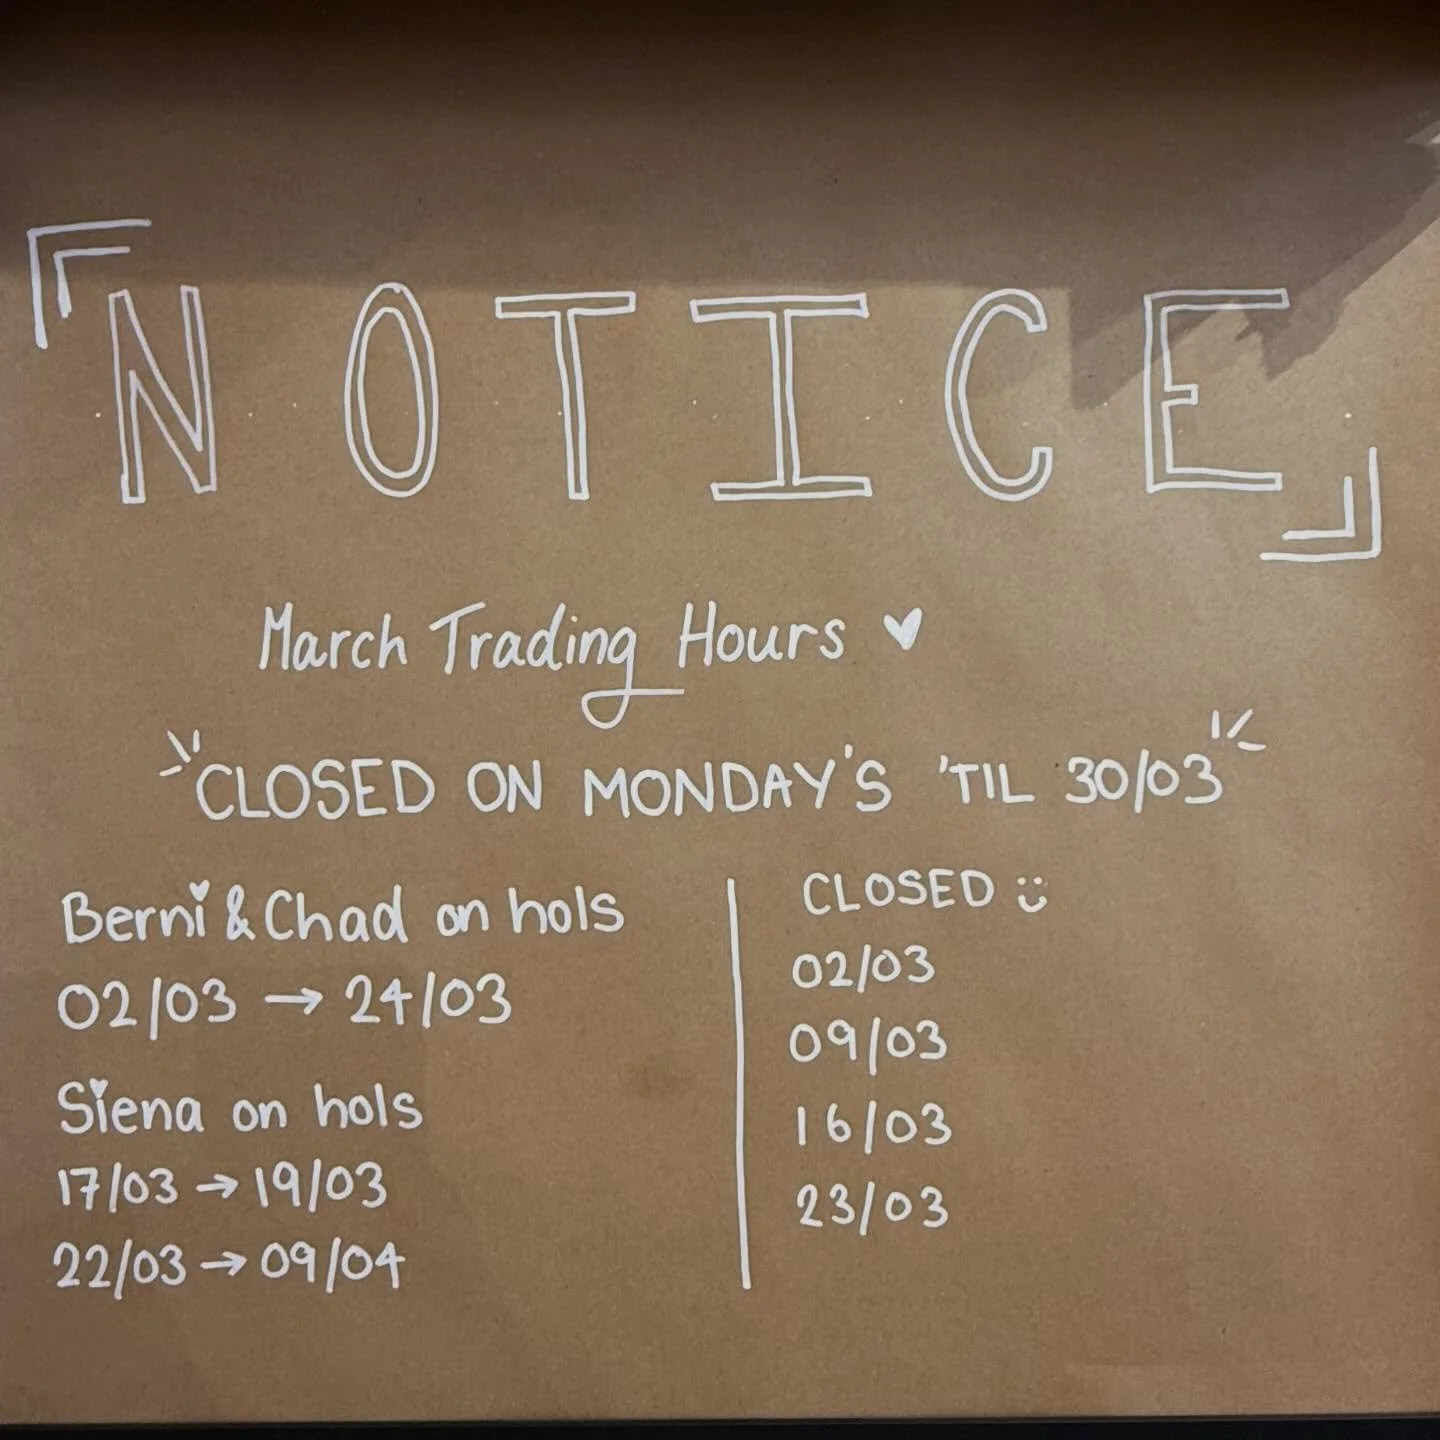 NOTICE
March Trading Hours ♥
CLOSED ON MONDAY'S 'TIL 30/03
Berni & Chad on hols
02/03 → 24/03
Siena on hols
17/03 → 19/03
22/03 → 09/04
CLOSED :)
02/03
09/03
16/03
23/03